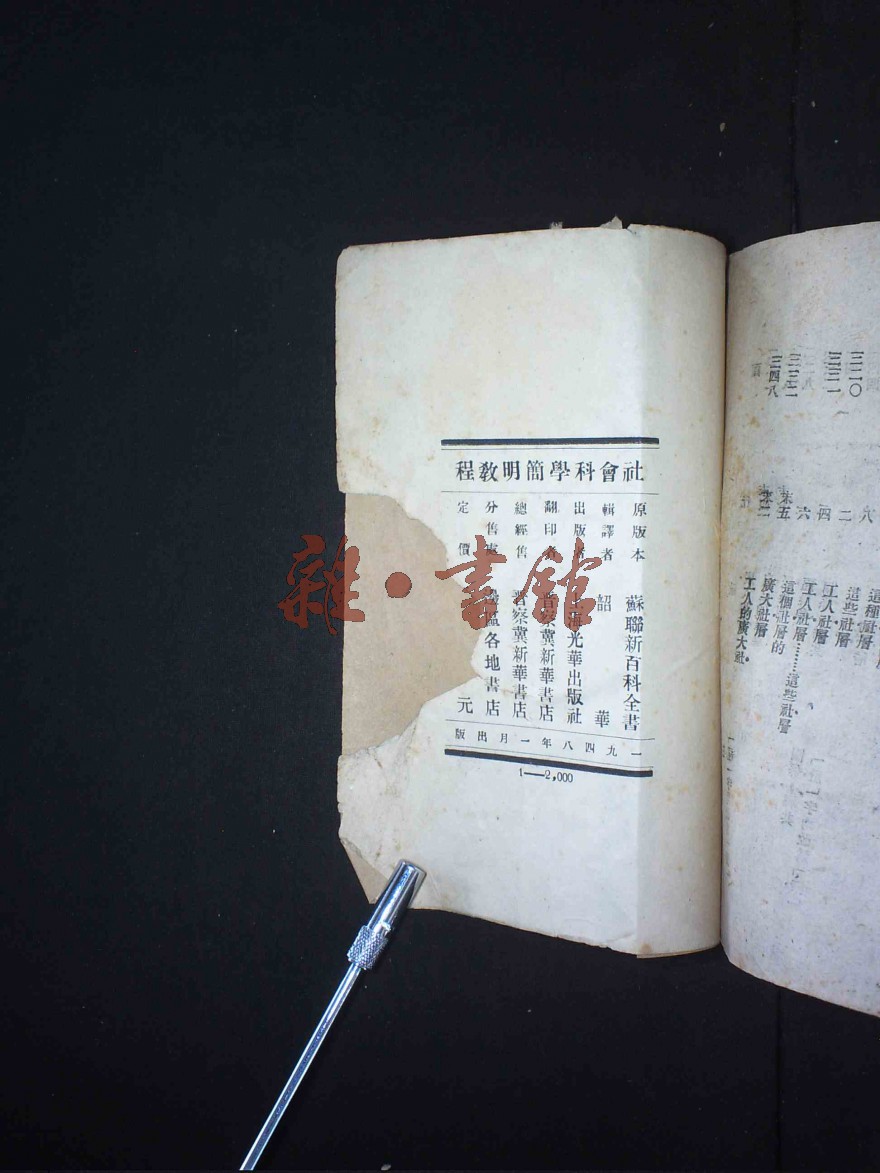 社會科學簡明敎程
原版本 蘇聯新百科全書
輯譯者 韶華
出版者 海光華出版社
翻印者 晉察冀新華書店
總經售 晉察冀新華書店
分售處 各地書店
定價 元
一九四八年一月出版
1—2,000
雜·書館
三二〇
三三一
三四八
八
二
四
六
末五
末二
這些社層
工人社層
工人社層……這些社層
這個社層的
廣大社層
工人的廣大社